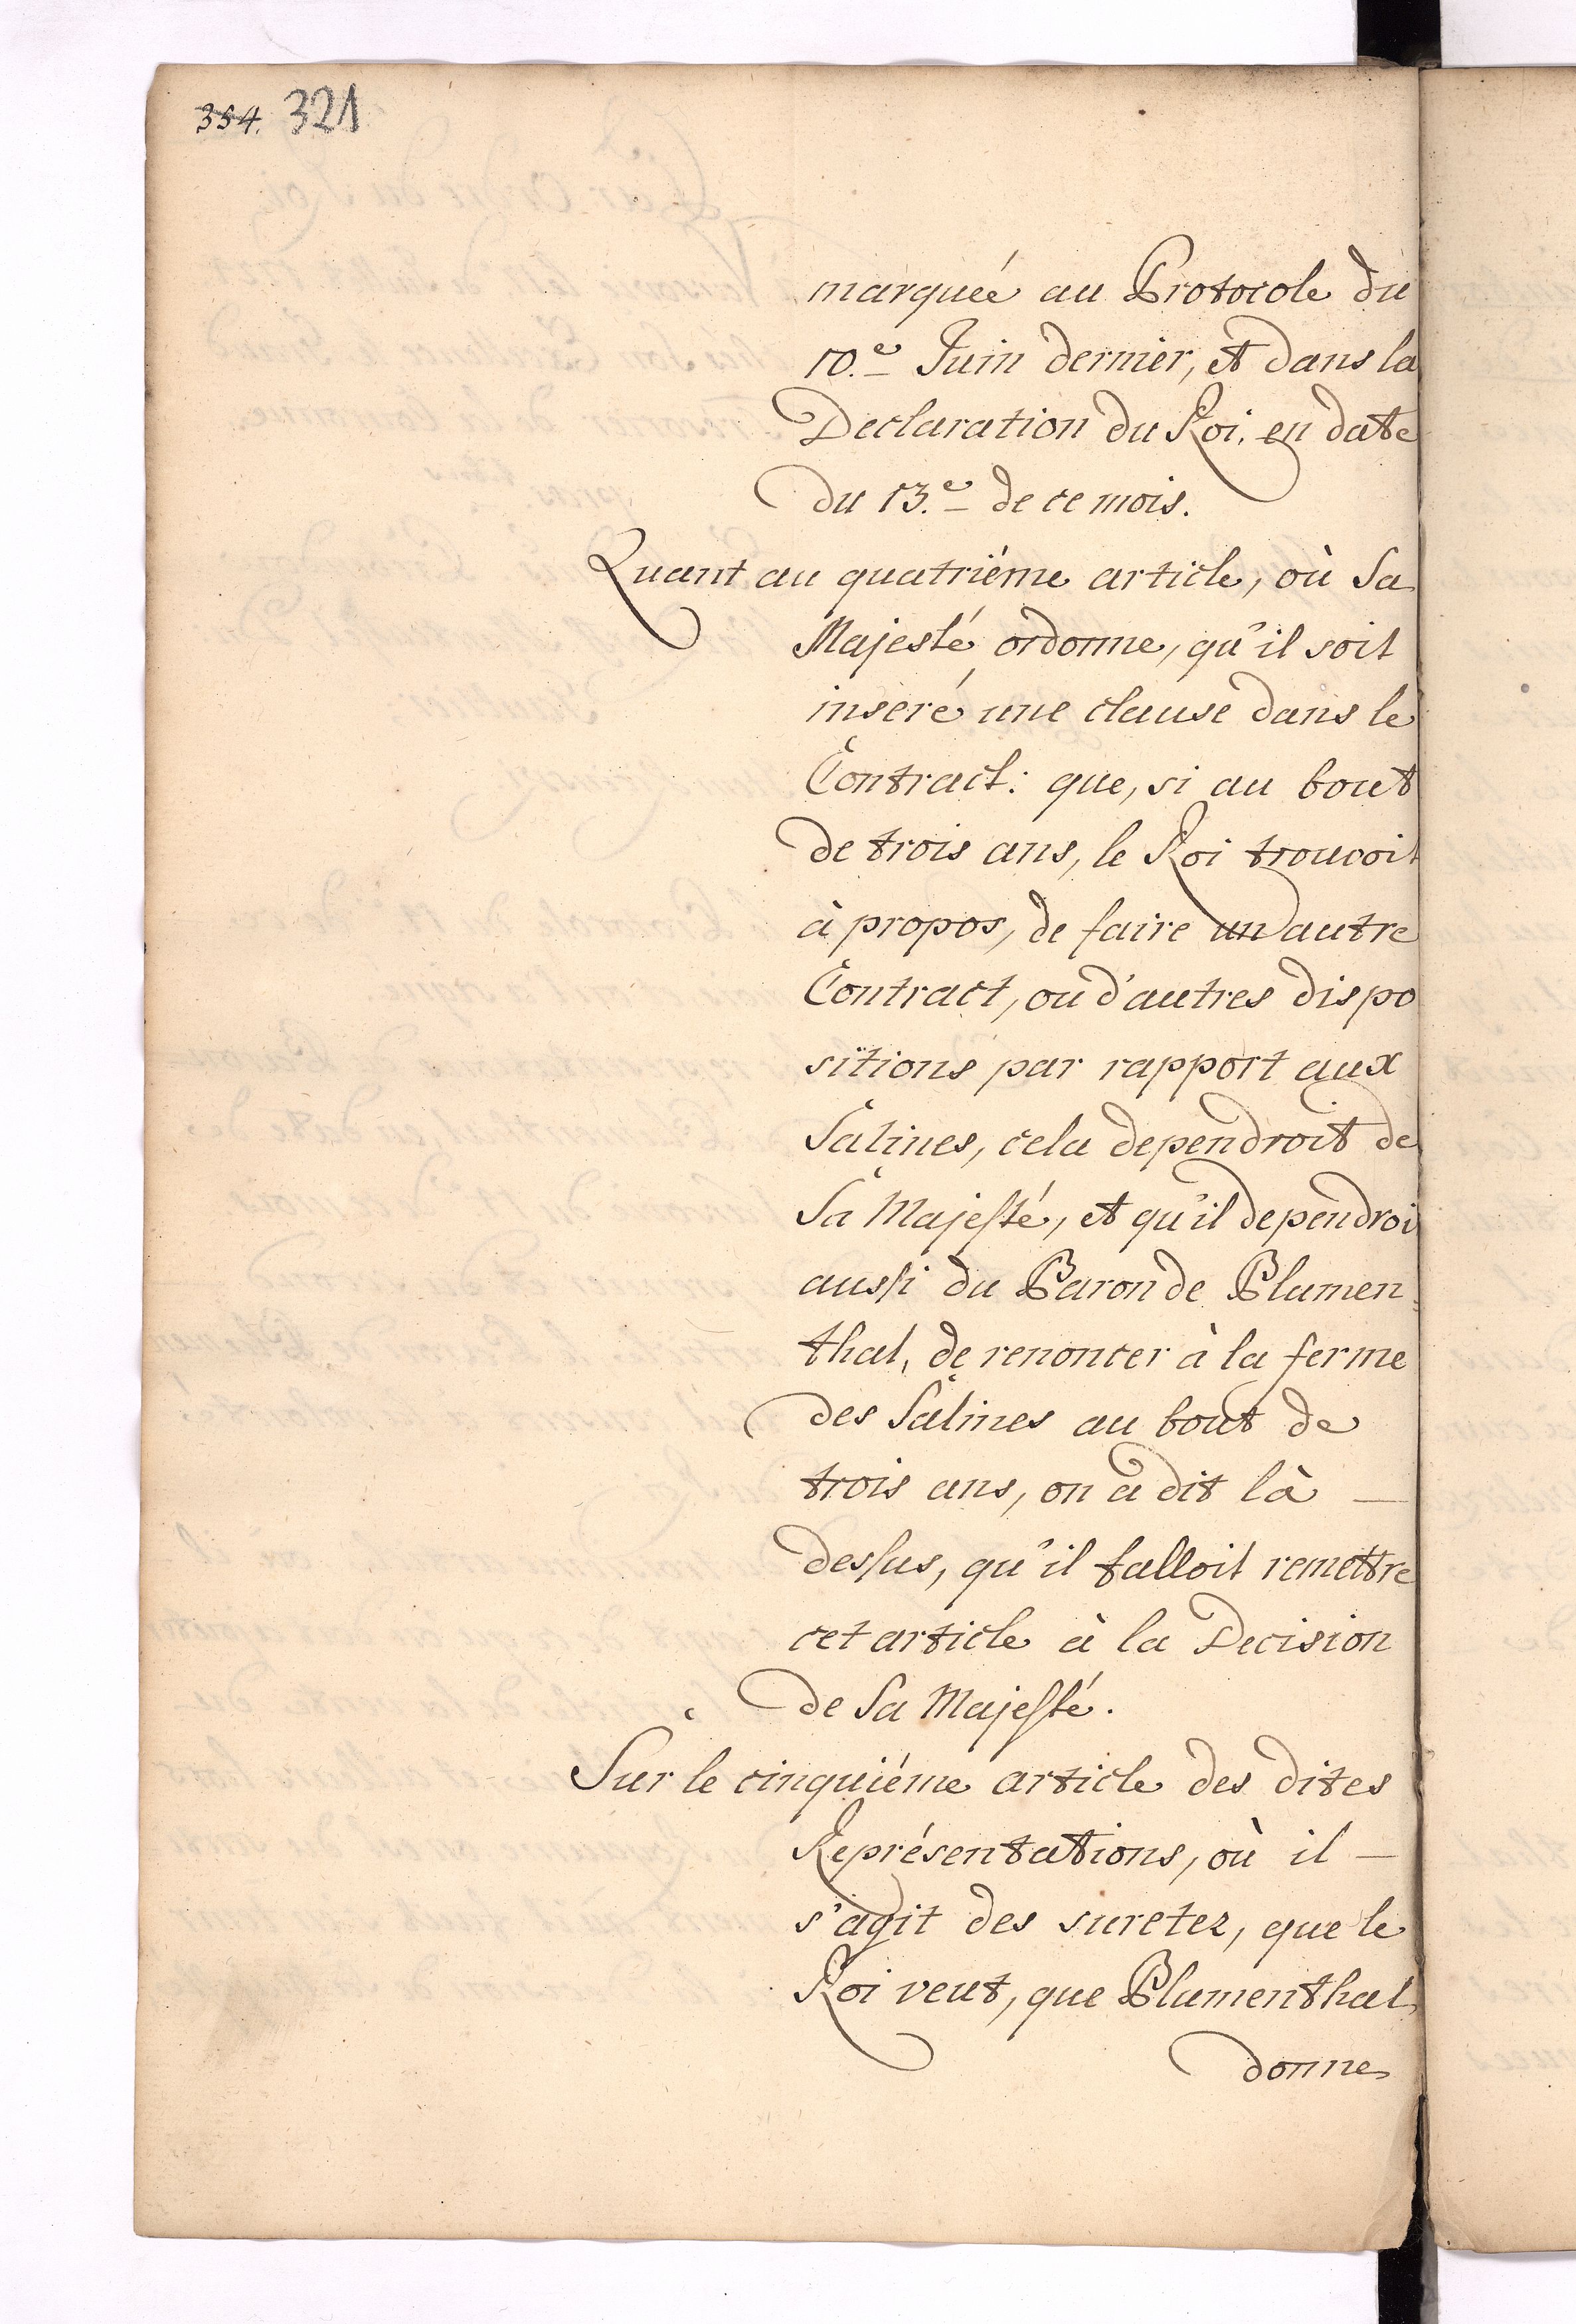 354. 321
marquée au Protocole du
10.e Juin dernier, et dans la
Declaration du Roi, en date
du 13.e de ce mois.
Quant au quatriéme article, où Sa
Majesté ordonne, qu'il soit
inseré une clause dans le
Contract: que, si au bout
de trois ans, le Roi trouvoit
à propos, de faire un autre
Contract, ou d'autres dispo
sitions par rapport aux
Salines, cela dependroit de
Sa Majesté, et qu'il dependroi
aussi du Baron de Blumen
thal, de renoncer à la ferme
des Salines au bout de
trois ans, on a dit là —
dessus, qu'il falloit remettre
cet article à la Decision
de Sa Majesté.
Sur le cinquiéme article des dites
Représentations, où il —
s'agit des suretez, que le
Roi veut, que Blumenthal
donne